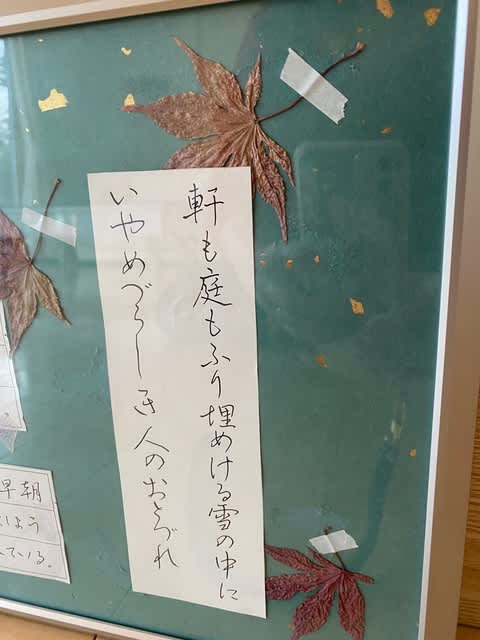 軒も庭もふり埋めける雪の中に
いやめづらしき人のおとづれ
早朝
ている。